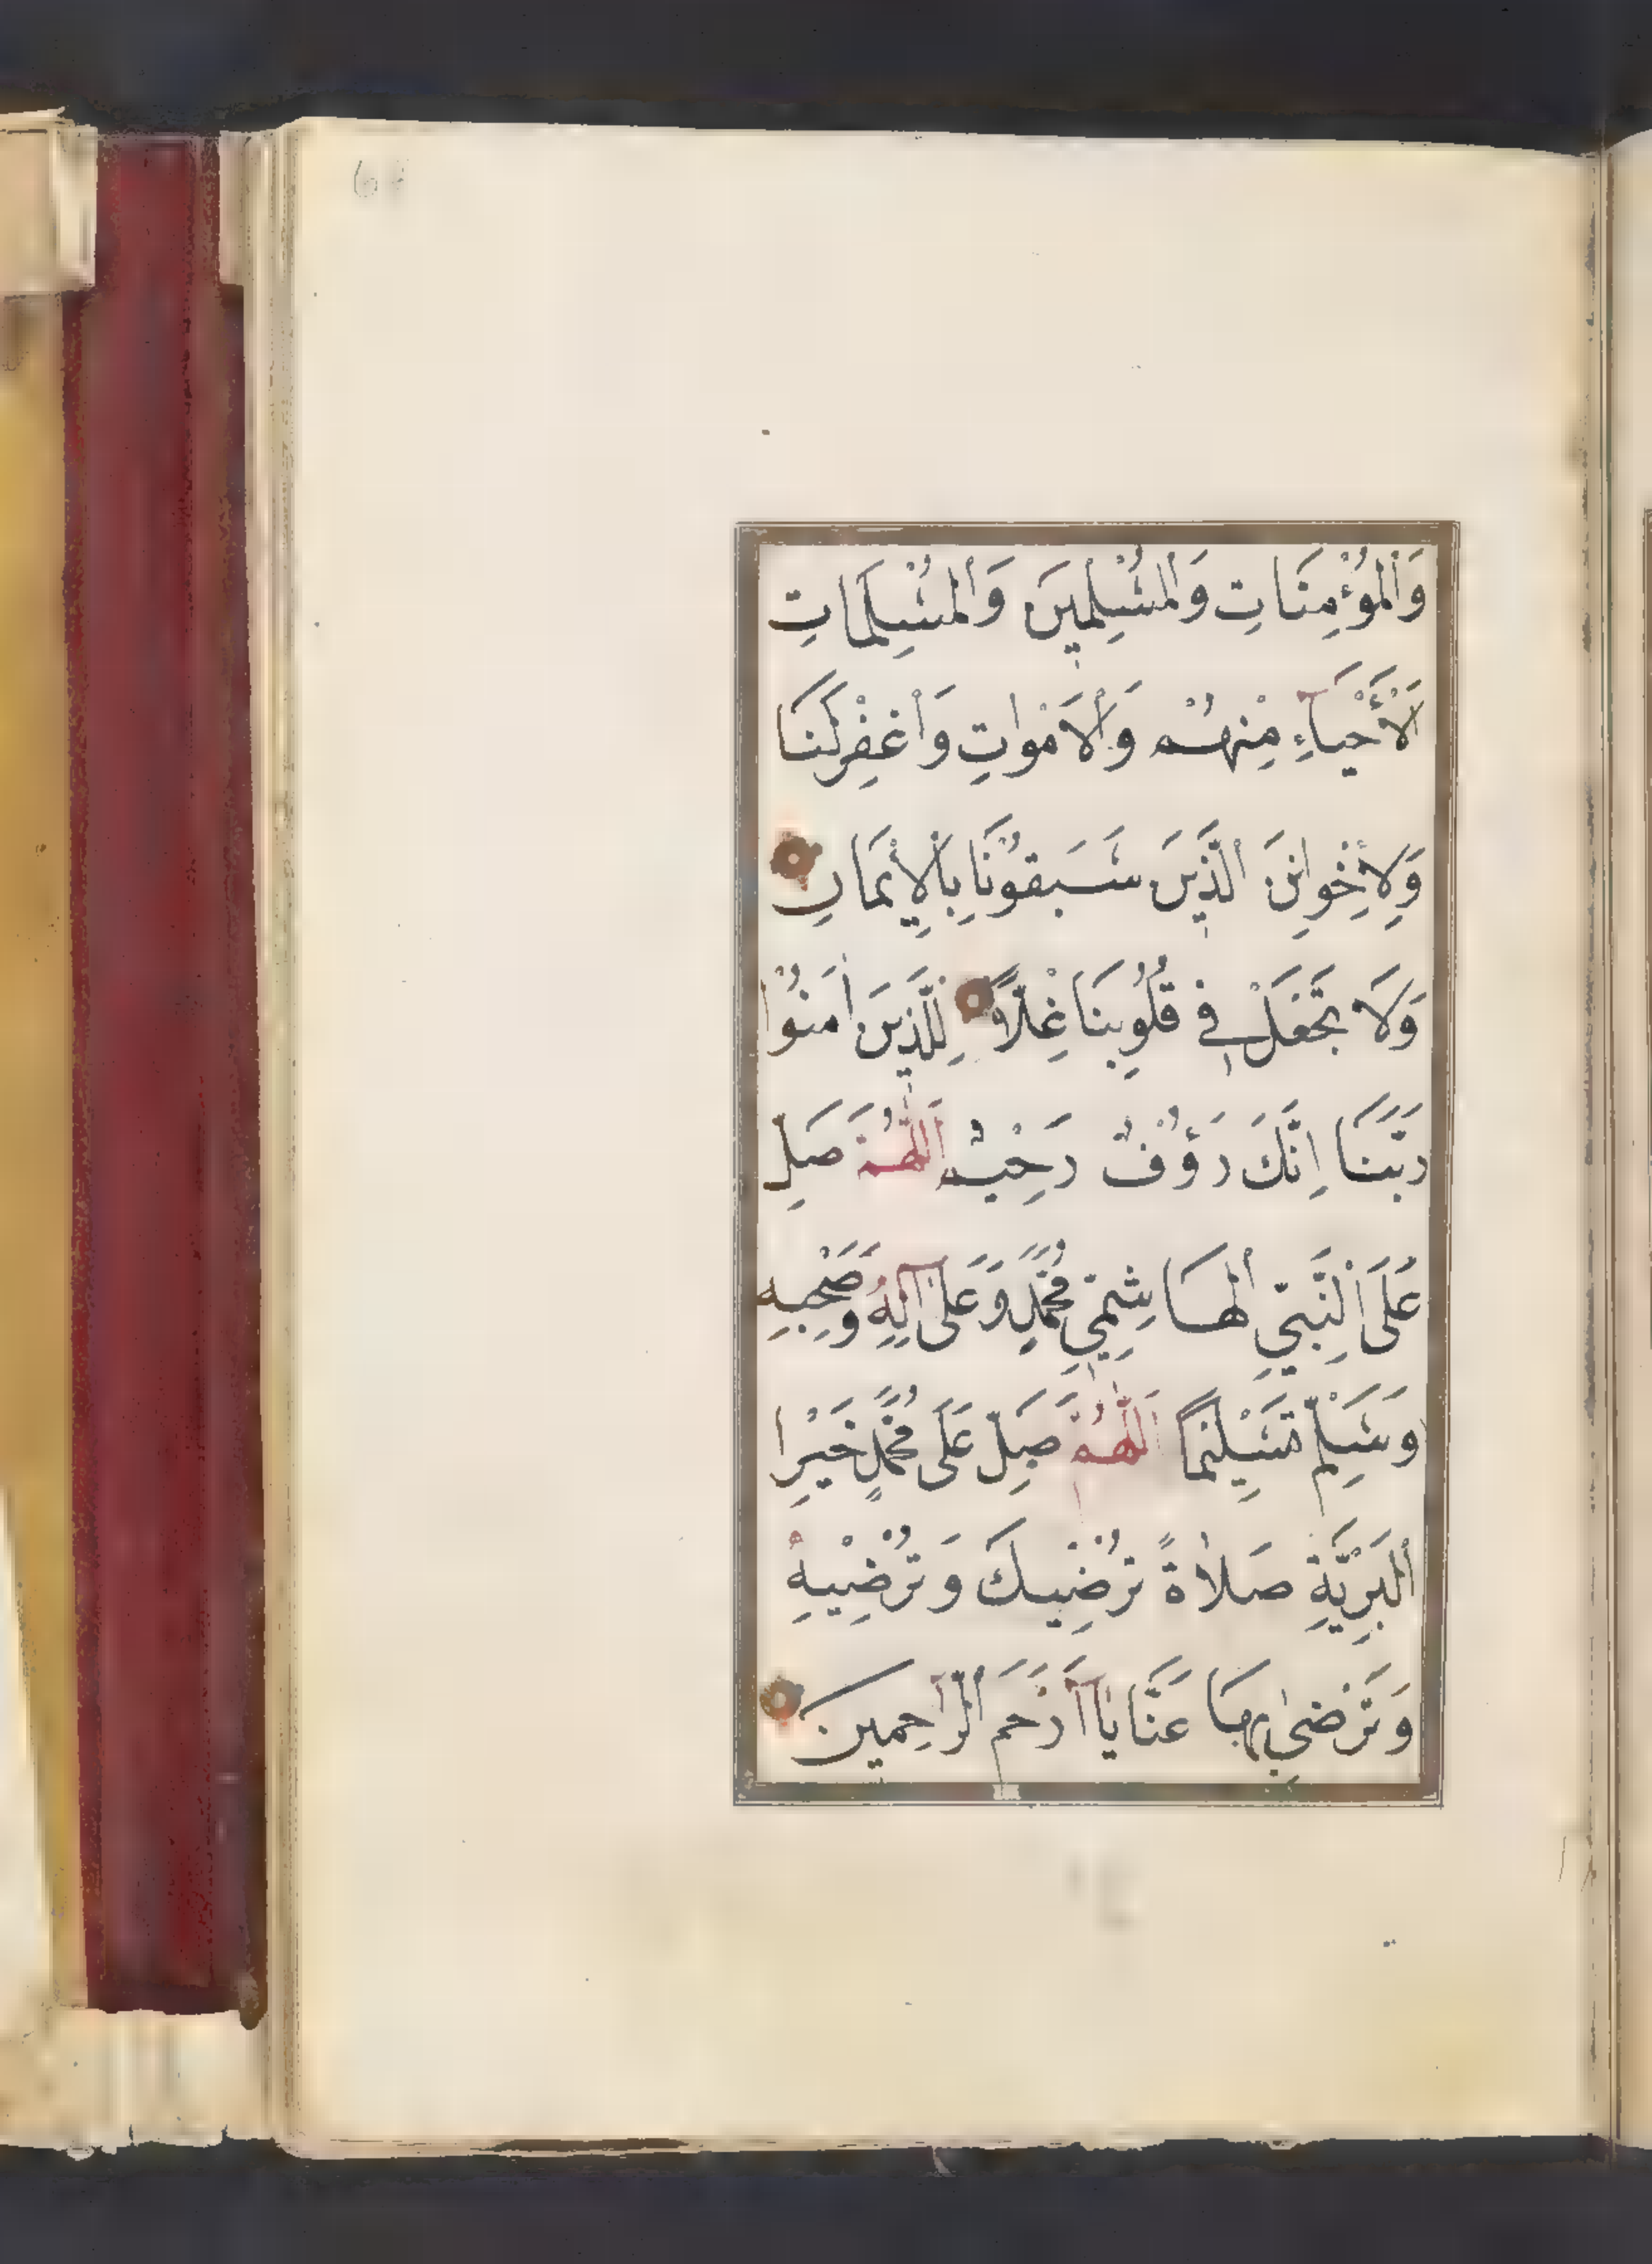 وَالْمُؤْمِنَاتِ وَالْمُسْلِمِينَ وَالْمُسْلِمَاتِ
الْأَحْيَاءِ مِنْهُمْ وَالْأَمْوَاتِ وَاغْفِرْ لَنَا
وَلِإِخْوَانِنَ الَّذِينَ سَبَقُونَا بِالْإِيمَانِ
وَلَا تَجْعَلْ فِي قُلُوبِنَا غِلًّا لِلَّذِينَ آمَنُوا
رَبَّنَا إِنَّكَ رَؤُفٌ رَحِيمٌ اَللّٰهُمَّ صَلِّ
عَلَى النَّبِيِّ الْهَاشِمِيِّ مُحَمَّدٍ وَعَلَى آلِهِ وَصَحْبِهِ
وَسَلِّمْ تَسْلِيمًا اَللّٰهُمَّ صَلِّ عَلَى مُحَمَّدٍ خَيْرِ
الْبَرِيَّةِ صَلَاةً تُرْضِيكَ وَتُرْضِيهِ
وَتَرْضَى بِهَا عَنَّا يَا أَرْحَمَ الرَّاحِمِينَ